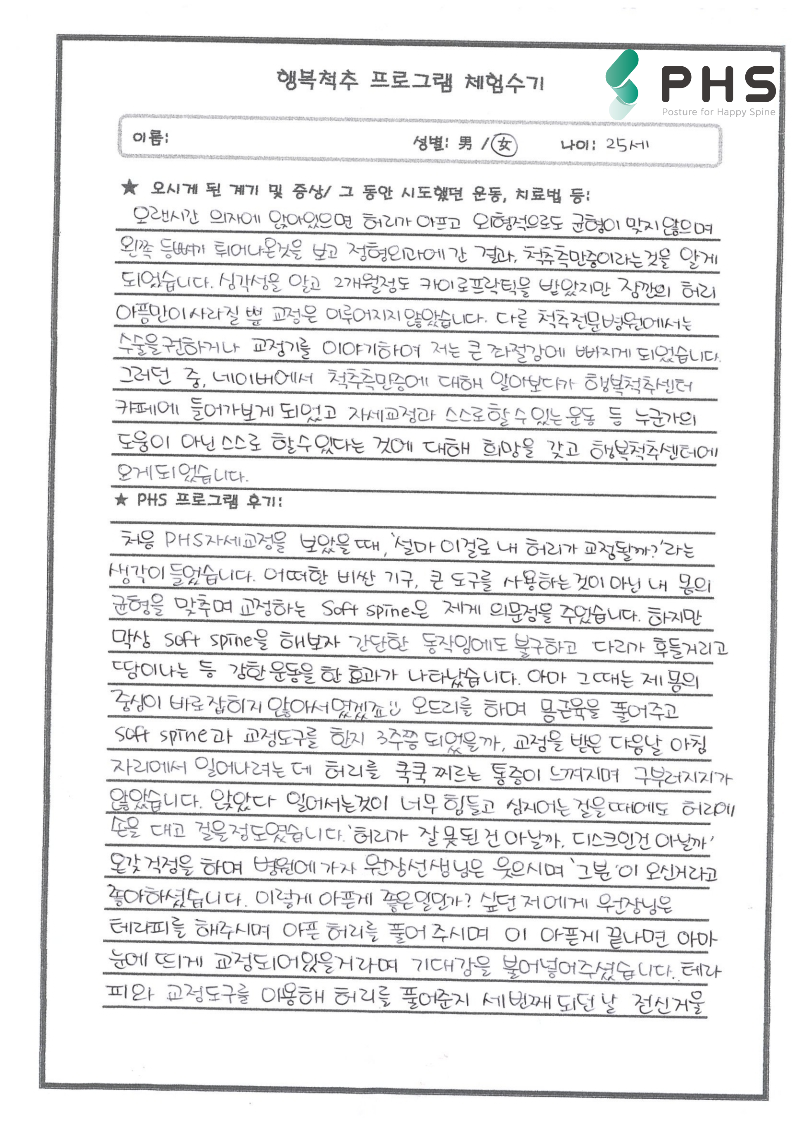 행복척추 프로그램 체험수기
PHS
Posture for Happy Spine
이름: 성별: 男 / 女 나이: 25세
★ 오시게 된 계기 및 증상/ 그 동안 시도했던 운동, 치료법 등:
오랜시간 의자에 앉아있으면 허리가 아프고 외형적으로도 균형이 맞지 않으며
왼쪽 등뼈가 튀어나온것을 보고 정형외과에 간 결과, 척추측만증이라는것을 알게
되었습니다. 심각성을 알고 2개월정도 카이로프락틱을 받았지만 잠깐의 허리
아픔만이 사라질 뿐 교정은 이루어지지 않았습니다. 다른 척추전문병원에서는
수술을 권하거나 교정기를 이야기하여 저는 큰 좌절감에 빠지게 되었습니다.
그러던 중, 네이버에서 척추측만증에 대해 알아보다가 행복척추센터
카페에 들어가보게 되었고 자세교정과 스스로할 수 있는 운동 등 누군가의
도움이 아닌 스스로 할수있다는 것에 대해 희망을 갖고 행복척추센터에
오게되었습니다.
★ PHS 프로그램 후기:
처음 PHS자세교정을 보았을때, '설마 이걸로 내 허리가 교정될까?'라는
생각이 들었습니다. 어떠한 비싼 기구, 큰 도구를 사용하는것이 아닌 내 몸의
균형을 맞추며 교정하는 Soft spine은 제게 의문점을 주었습니다. 하지만
막상 soft spine을 해보자 간단한 동작임에도 불구하고 다리가 후들거리고
땀이나는 등 강한운동을 한 효과가 나타났습니다. 아마 그때는 제 몸의
중심이 바로잡히지 않아서였겠죠 오드리를 하며 몸근육을 풀어주고
soft spine과 교정도구를 한지 3주쯤 되었을까, 교정을 받은 다음날 아침
자리에서 일어나려는데 허리를 쿡쿡 찌르는 통증이 느껴지며 구부러지지가
않았습니다. 앉았다 일어서는것이 너무 힘들고 심지어는 걸을때에도 허리에
손을 대고 걸을정도였습니다. '허리가 잘못된건 아닐까, 디스크인건 아닐까'
온갖 걱정을 하며 병원에 가자 원장선생님은 웃으시며 '그분'이 오신거라고
좋아하셨습니다. 이렇게 아픈게 좋은일인가? 싶던 저에게 원장님은
테라피를 해주시며 아픈 허리를 풀어 주시며 이 아픈게 끝나면 아마
눈에 띄게 교정되어있을거라며 기대감을 불어넣어주셨습니다. 테라
피와 교정도구를 이용해 허리를 풀어준지 세번째 되던 날 전신거울